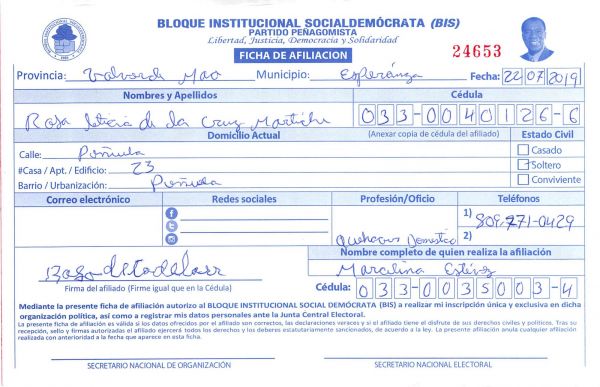 BLOQUE INSTITUCIONAL SOCIALDEMÓCRATA (BIS)
PARTIDO PEÑAGOMISTA
Libertad, Justicia, Democracia y Solidaridad
FICHA DE AFILIACION
24653
Provincia: Valverde Mao Municipio: Esperánza Fecha: 22/07/2019
Nombres y Apellidos Cédula
Rosa leticia de la Cruz 033-0040126-6
Domicilio Actual (Anexar copia de cédula del afiliado) Estado Civil
Calle: Casado
#Casa / Apt. / Edificio: 23 Soltero
Barrio / Urbanización: Conviviente
Correo electrónico Redes sociales Profesión/Oficio Teléfonos
1) 809-771-0429
Quehaceres Domestico 2)
Nombre completo de quien realiza la afiliación
Marcelina Estévez
Firma del afiliado (Firme igual que en la Cédula) Cédula: 033-0035003-4
Mediante la presente ficha de afiliación autorizo al BLOQUE INSTITUCIONAL SOCIAL DEMÓCRATA (BIS) a realizar mi inscripción única y exclusiva en dicha
organización política, así como a registrar mis datos personales ante la Junta Central Electoral.
La presente ficha de afiliación es válida si los datos ofrecidos por el afiliado son correctos, las declaraciones veraces y si el afiliado tiene el disfrute de sus derechos civiles y políticos. Tras su
recepción, sello y firmas autorizadas el afiliado ejercerá todos los derechos y los deberes estatutariamente sancionados, de acuerdo a la ley. La presente afiliación anula cualquier afiliación
realizada con anterioridad a la fecha que aparece en esta ficha.
SECRETARIO NACIONAL DE ORGANIZACIÓN SECRETARIO NACIONAL ELECTORAL